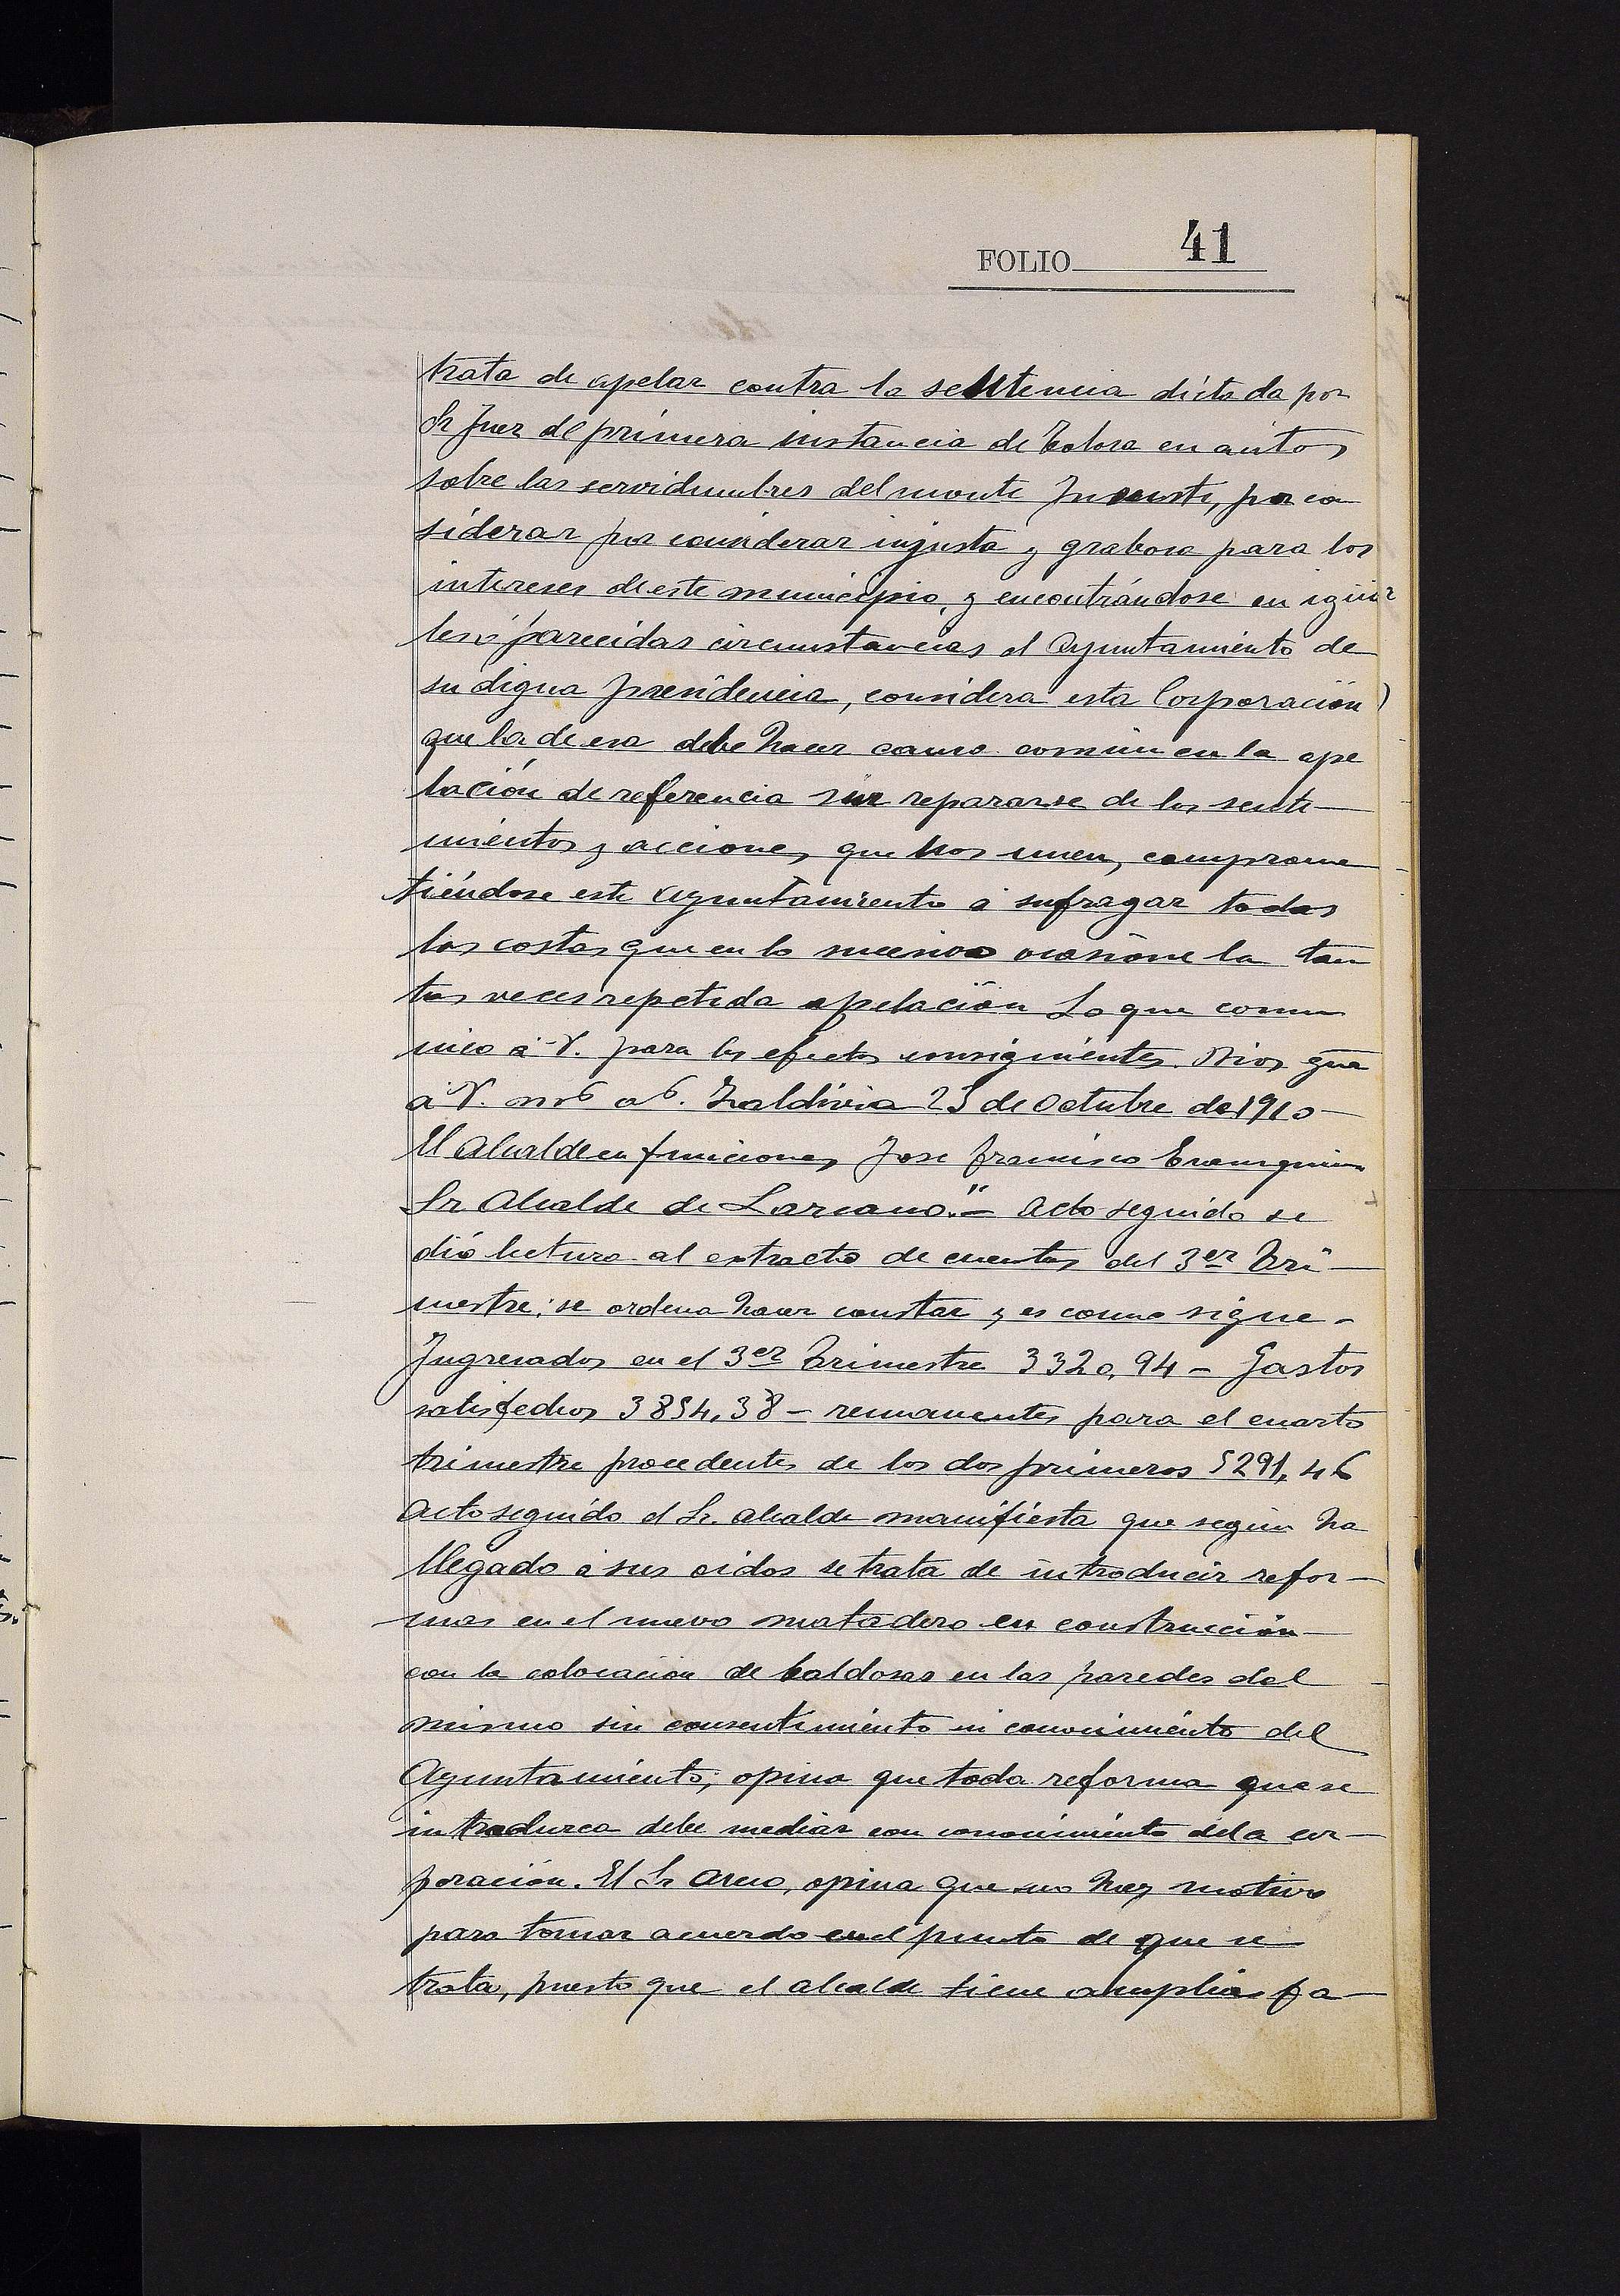 FOLIO 41
trata de apelar contra la sentencia dictada por
Sr Juez de primera instancia de Tolosa en autos
sobre las servidumbres del monte por co
siderar por considerar injusta y grabosa para los
intereses de este municipio, y encontrándose en igüa
les ó parecidas circunstancias el Ayuntamiento de
su digna presidencia, considera esta Corporación
que la de esa debe hacer causa común en la ape
lación de referencia sin repararse de los senti-
mientos y acciones que nos unen, comprome
tiéndose este ayuntamiento á sufragar todas
las costas que en lo sucesivo ocasione la tan
tas veces repetida apelación Lo que comu
nico á V. para los efectos consiguientes. Dios gue
á V. ms as. Zaldivia 25 de Octubre de 1910-
El Alcalde en funciones Jose Francisco
Sr. Alcalde de Lazcano."- Acto seguido se
dió lectura al extracto de cuentas del 3er Tri-
mestre; se ordena hacer constar y es como sigue-
Ingresados en el 3er Trimestre 3320,94 - Gastos
satisfechos 3854,38 - remanentes para el cuarto
trimestre procedentes de los dos primeros 5291,46
Acto seguido el Sr. alcalde manifiesta que según ha
llegado á sus oidos se trata de introducir refor-
mas en el nuevo matadero en construcción-
con la colocación de baldosas en las paredes del
mismo sin consentimiento ni conocimiento del
Ayuntamiento; opina que toda reforma que se
introduzca debe mediar con conocimiento dela cor-
poración. El Sr opina que no hay motivo
para tomar acuerdo en el punto de que se
trata, puesto que el alcalde tiene amplias fa-